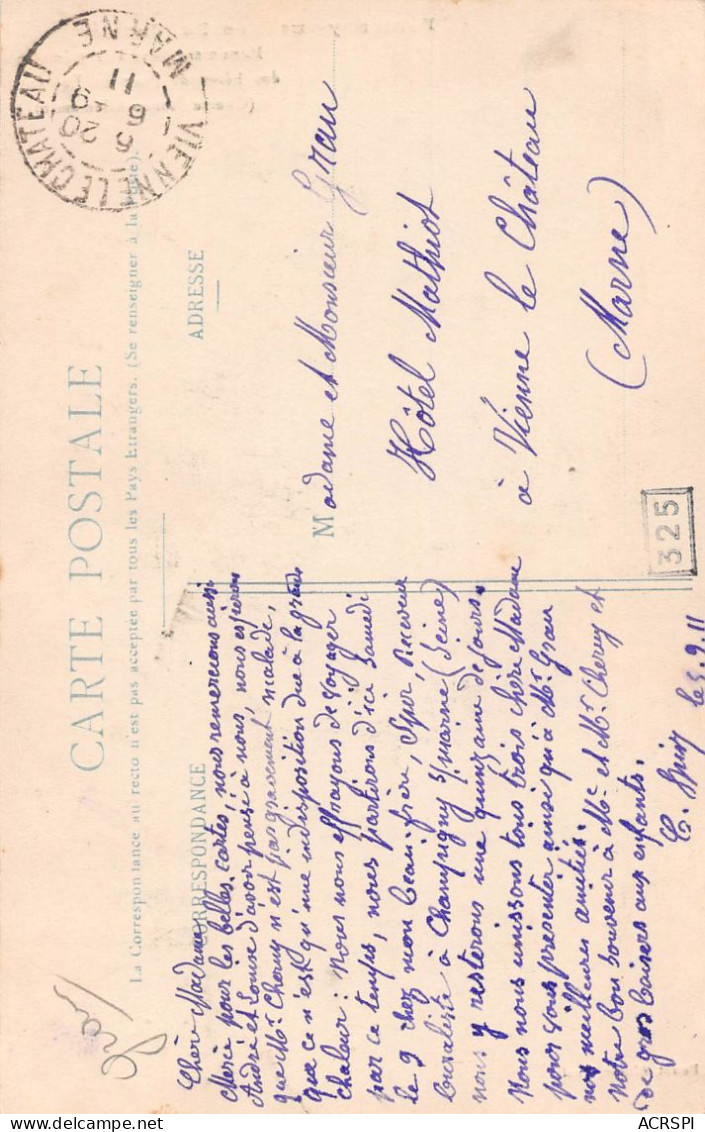 CARTE POSTALE
La Correspondance au recto n'est pas acceptée par tous les Pays Etrangers. (Se renseigner à la Poste).
CORRESPONDANCE
ADRESSE
Chère Madame,
Merci pour les belles cartes, nous remercions aussi
André et Louise d'avoir pensé à nous, nous espérons
que Me Cherny n'est pas gravement malade,
que ce n'est qu'une indisposition due à la grande
chaleur : Nous nous effrayons de voyager
par ce temps, nous partirons d'ici Samedi
le 9 chez mon beau-frère, Mr Receveur
buraliste à Champigny s/ marne (Seine)
nous y resterons une quinzaine de jours.
Nous nous unissons tous trois chère Madame
pour vous présenter ainsi qu'à Mr Grau
nos meilleures amitiés.
Notre bon souvenir à Me et Mr Cherny et
de gros baisers aux enfants.
le 5.9.11
Madame et Monsieur Grau
Hôtel Mathiot
à Vienne le Château
(Marne)
325
VIENNE LE CHATEAU
MARNE
20
5 - 9
11
ACRSPI